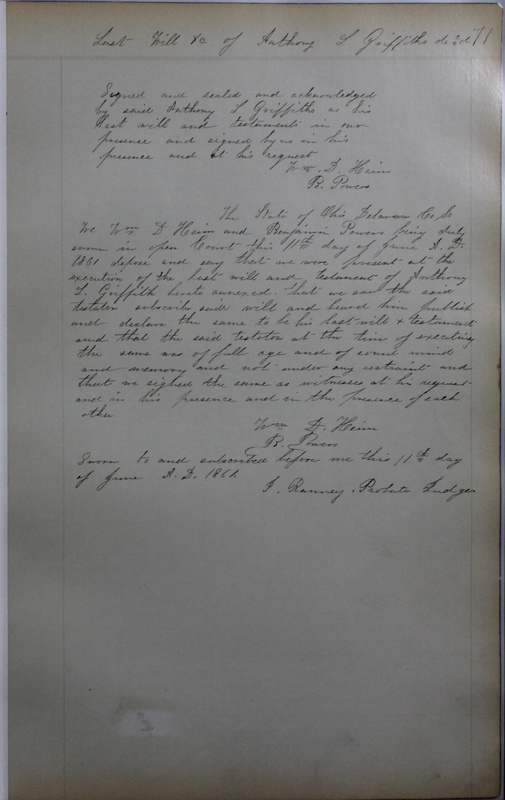 Last Will &c of Anthony S Griffiths de2d 71
Signed and sealed and acknowledged
by said Anthony S Griffiths as his
last will and testament in our
presence and signed by us in his
presence and at his request
Wm. D. Heim
B. Powers
The State of Ohio Delaware Co Ss
We Wm D Heim and Benjamin Powers being duly
sworn in open Court this 11th day of June A. D.
1861 depose and say that we were present at the
execution of the last will and testament of Anthony
S. Griffith hereto annexed. that we saw the said
testator subscribe said will and heard him publish
and declare the same to be his last will & testament
and that the said testator at the time of executing
the same was of full age and of sound mind
and memory and not under any restraint and
that we signed the same as witnesses at his request
and in his presence and in the presence of each
other
Wm D. Heim
B. Powers
Sworn to and subscribed before me this 11th day
of June A. D. 1861.
Ranney. Probate Judge